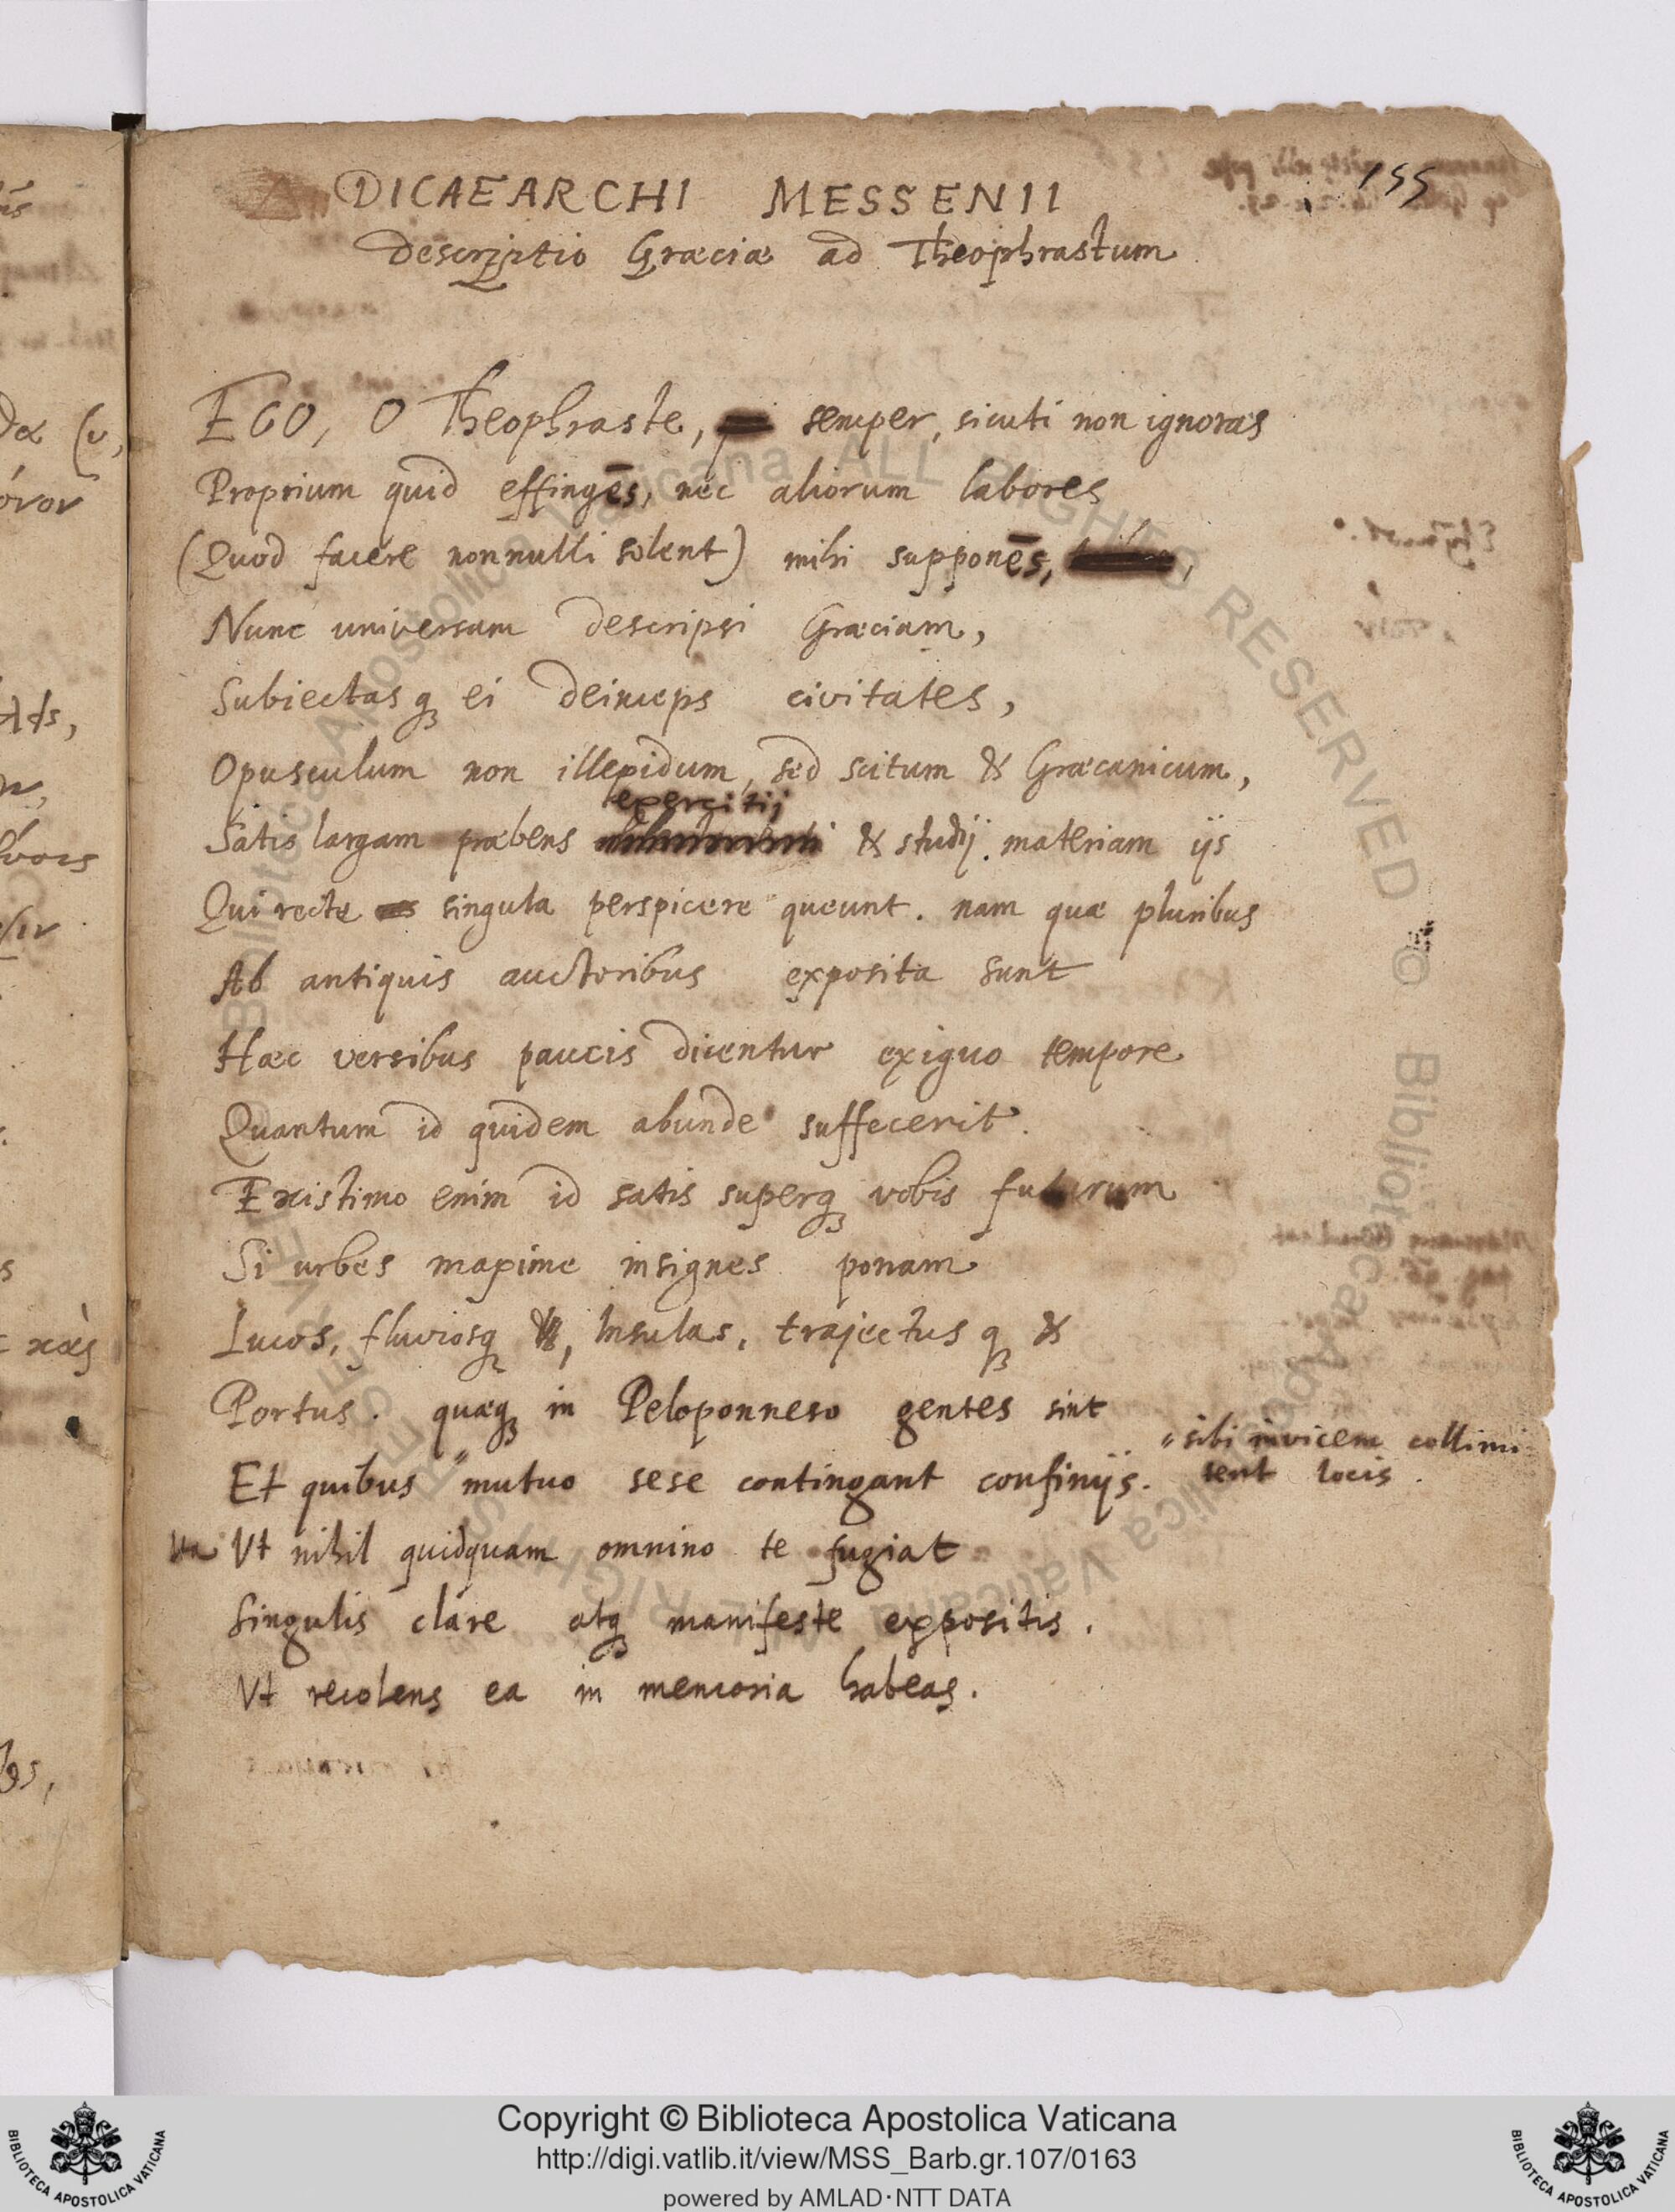 155
DICAEARCHI MESSENII
Descriptio Græciæ ad Theophrastum
EGO, O Theophraste, semper, sicuti non ignoras
Proprium quid effingēs, nec aliorum labores
(Quod facere nonnulli solent) mihi supponēs,
Nunc universam descripsi Græciam,
Subiectasq ei deinceps civitates,
Opusculum non illepidum, sed scitum & Græcanicum,
exercitij
Satis largam præbens & studij materiam ijs
Qui recte singula perspicere queunt. nam quæ pluribus
Ab antiquis auctoribus exposita sunt
Hæc versibus paucis dicentur exiguo tempore
Quantum id quidem abunde suffecerit.
Existimo enim id satis superq vobis futurum
Si urbes maxime insignes ponam
Lucos, fluviosq, Insulas, trajectus q &
Portus. quæq in Peloponneso gentes sint
Et quibus " mutuo sese contingant confinijs.
" sibi invicem collimi
tent locis.
Vt nihil quidquam omnino te fugiat
Singulis clare atq manifeste expositis.
Vt recolens ea in memoria habeas.
Copyright © Biblioteca Apostolica Vaticana
http://digi.vatlib.it/view/MSS_Barb.gr.107/0163
powered by AMLAD·NTT DATA
BIBLIOTECA APOSTOLICA VATICANA
BIBLIOTECA APOSTOLICA VATICANA